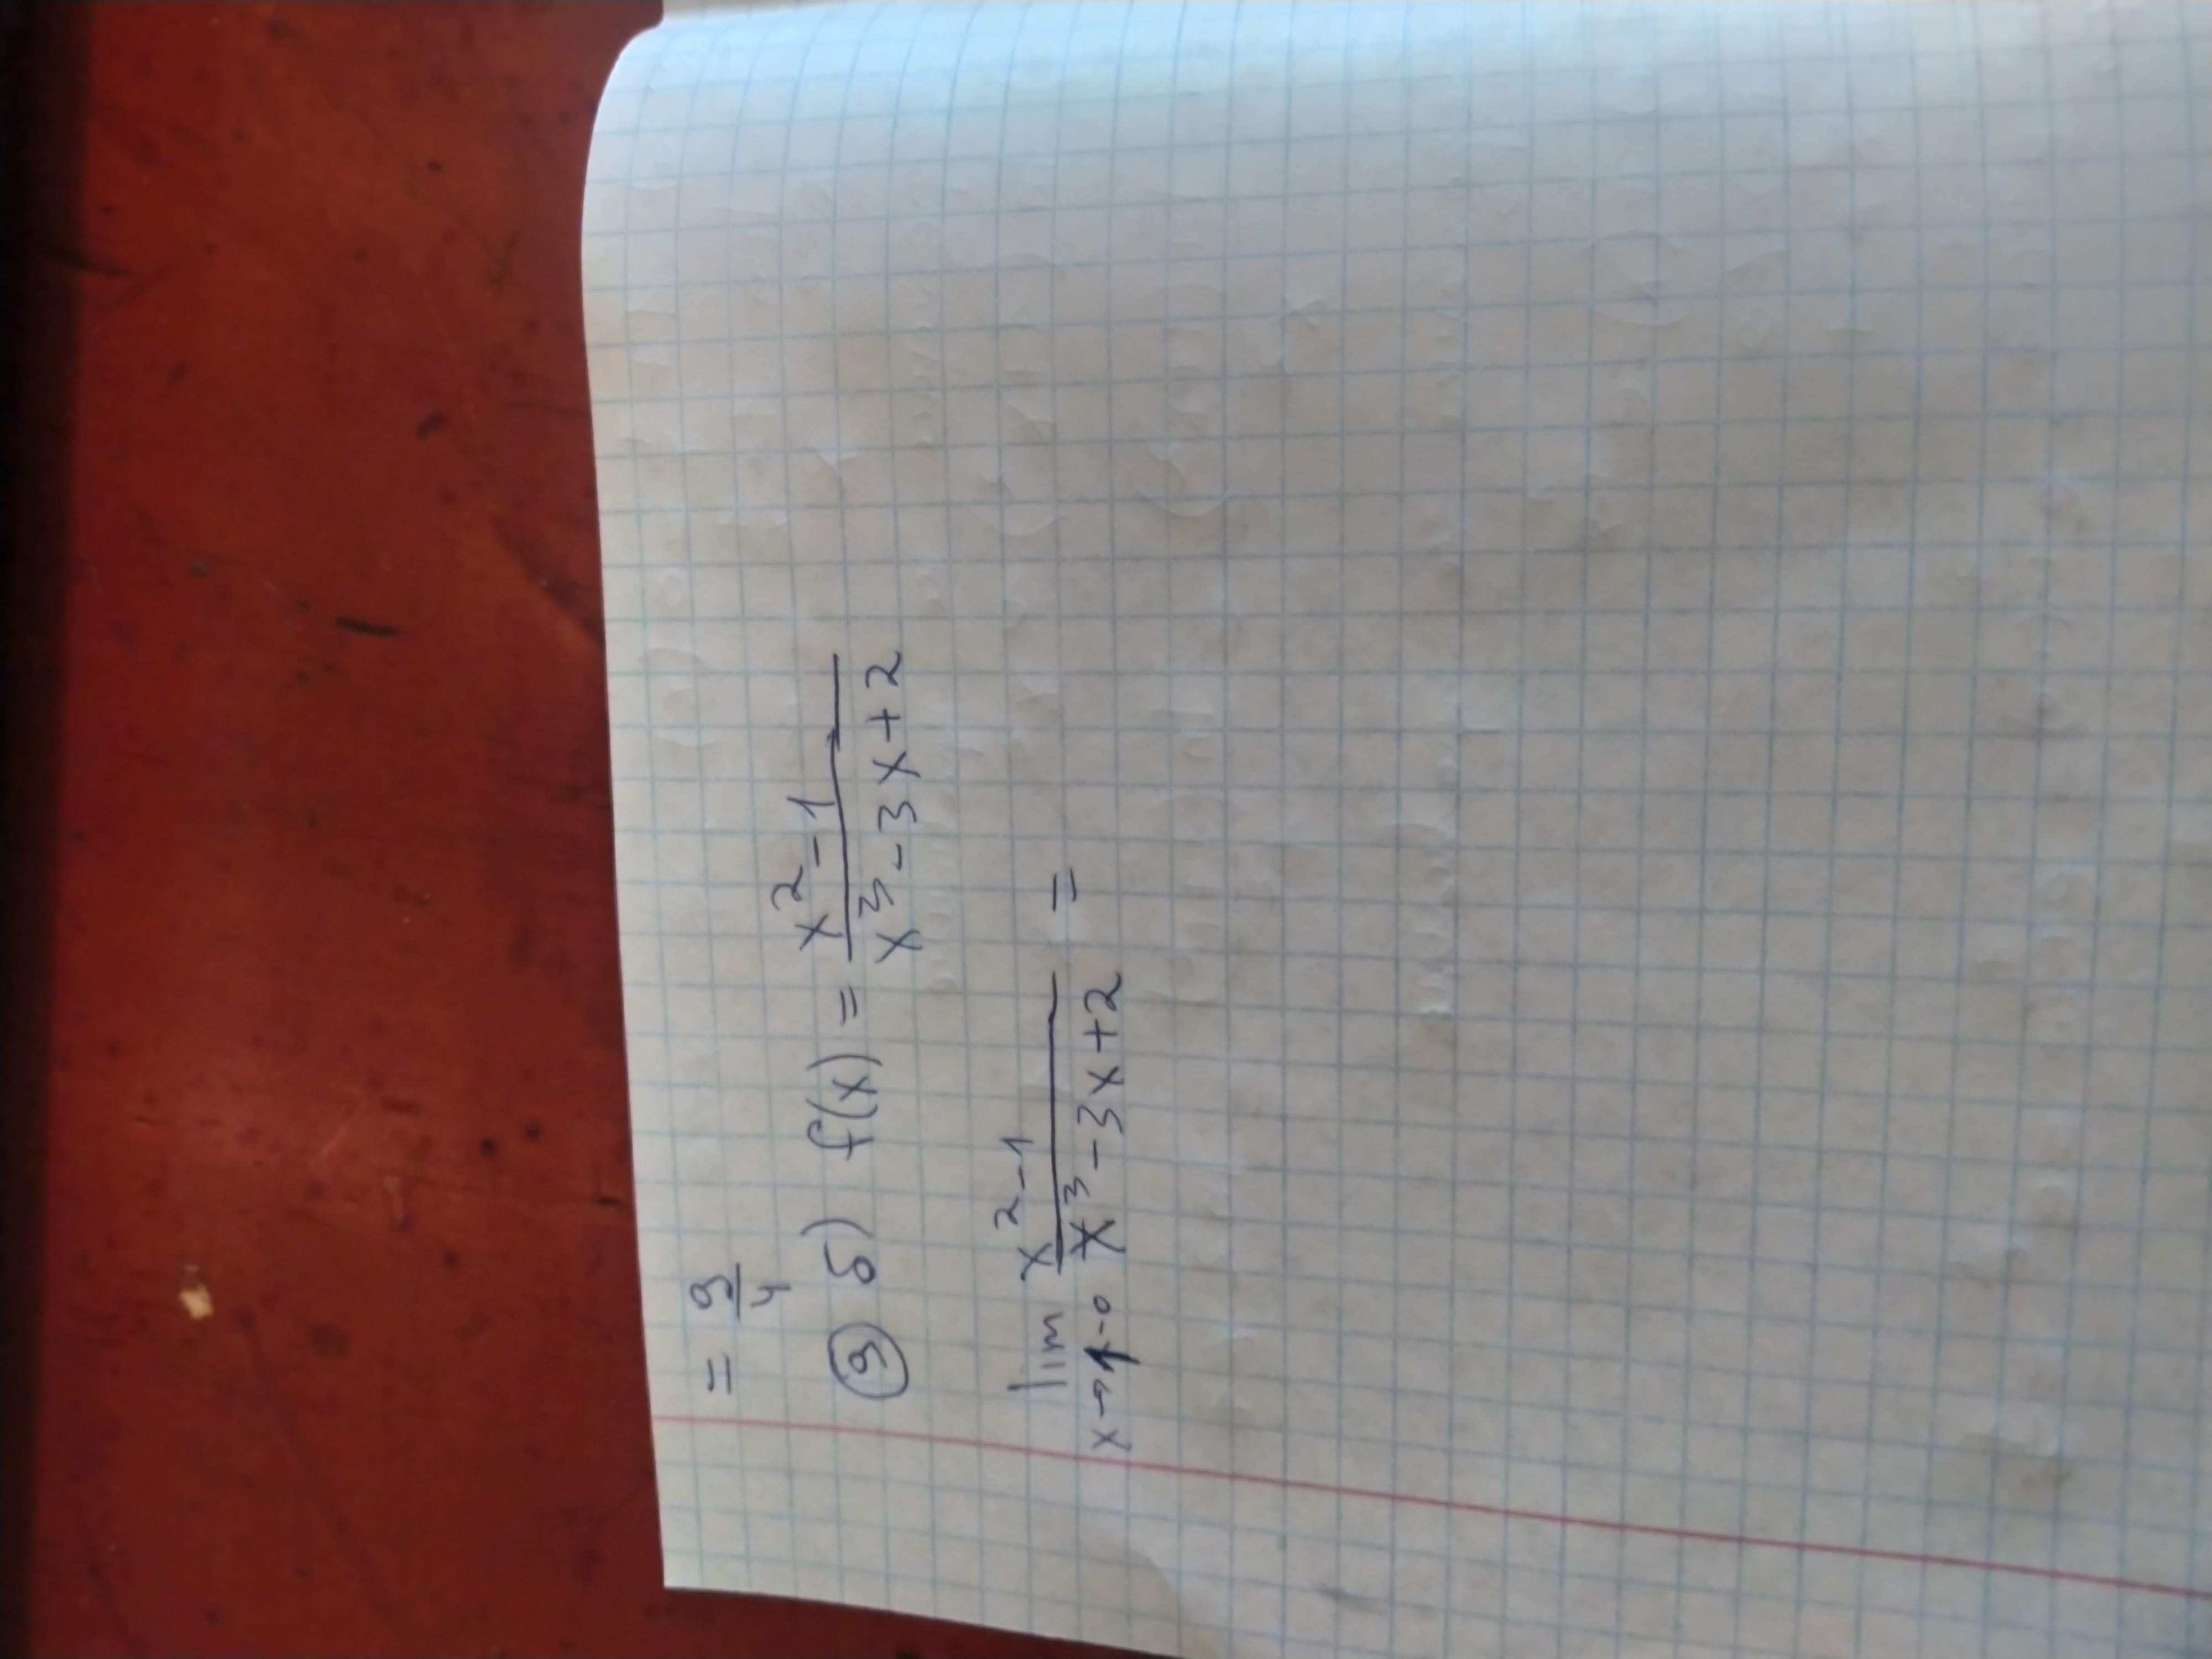 = 9/4
9 б) f(x) = (x² - 1)/(x³ - 3x + 2)
lim x→1-0 (x² - 1)/(x³ - 3x + 2) =